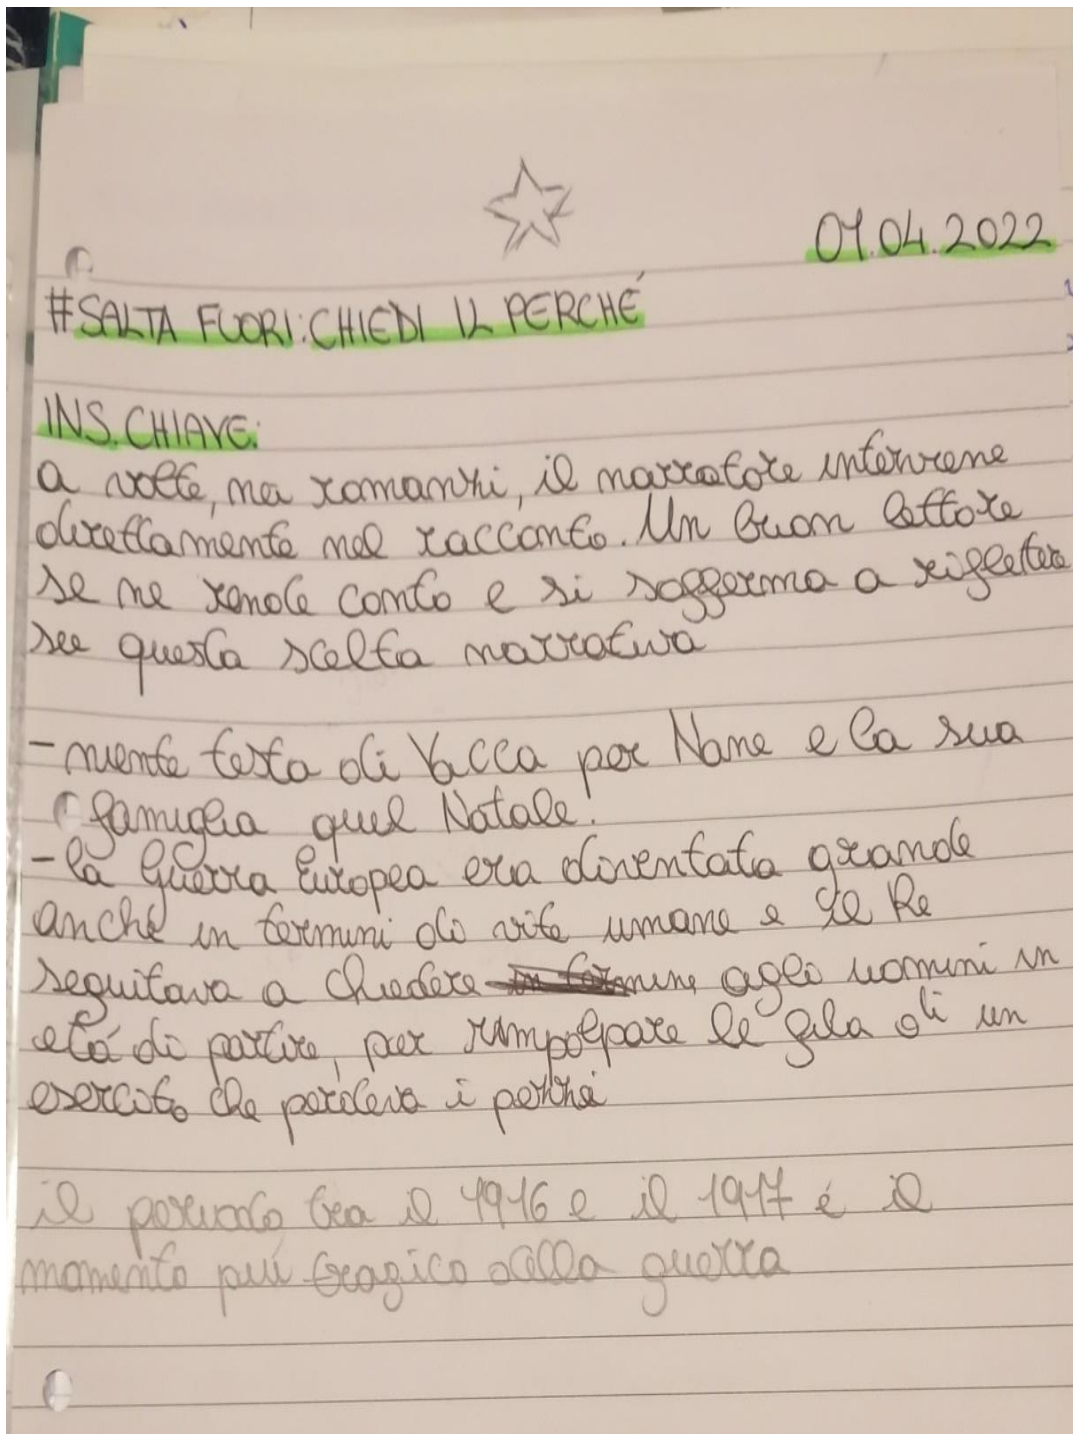 01.04.2022
#SALTA FUORI: CHIEDI IL PERCHÉ
INS. CHIAVE:
a volte, nei romanzi, il narratore interviene
direttamente nel racconto. Un buon lettore
se ne rende conto e si sofferma a riflettere
su questa scelta narrativa
- niente testa di Vacca per Nane e la sua
famiglia quel Natale!
- la Guerra Europea era diventata grande
anche in termini di vite umane e il Re
seguitava a chiedere agli uomini in
etá di partire, per rimpolpare le fila di un
esercito che perdeva i pezzi
il periodo tra il 1916 e il 1917 é il
momento piú tragico della guerra